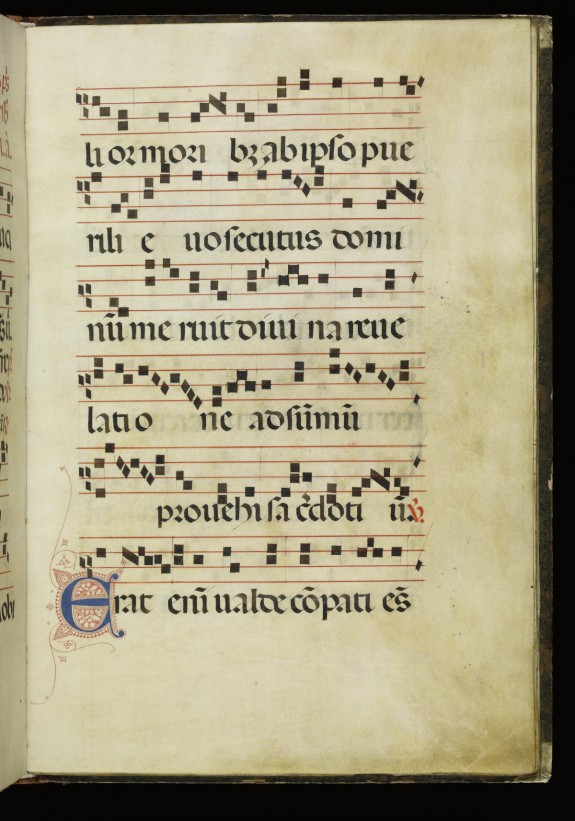 li or mori bz ab ipso pue
rili e uo secutus domi
nū me ruit diui na reue
latio ne ad sūmū
prouehi sa c̄doti ū ℣
Erat eni᷑ ualde cōpati es̄